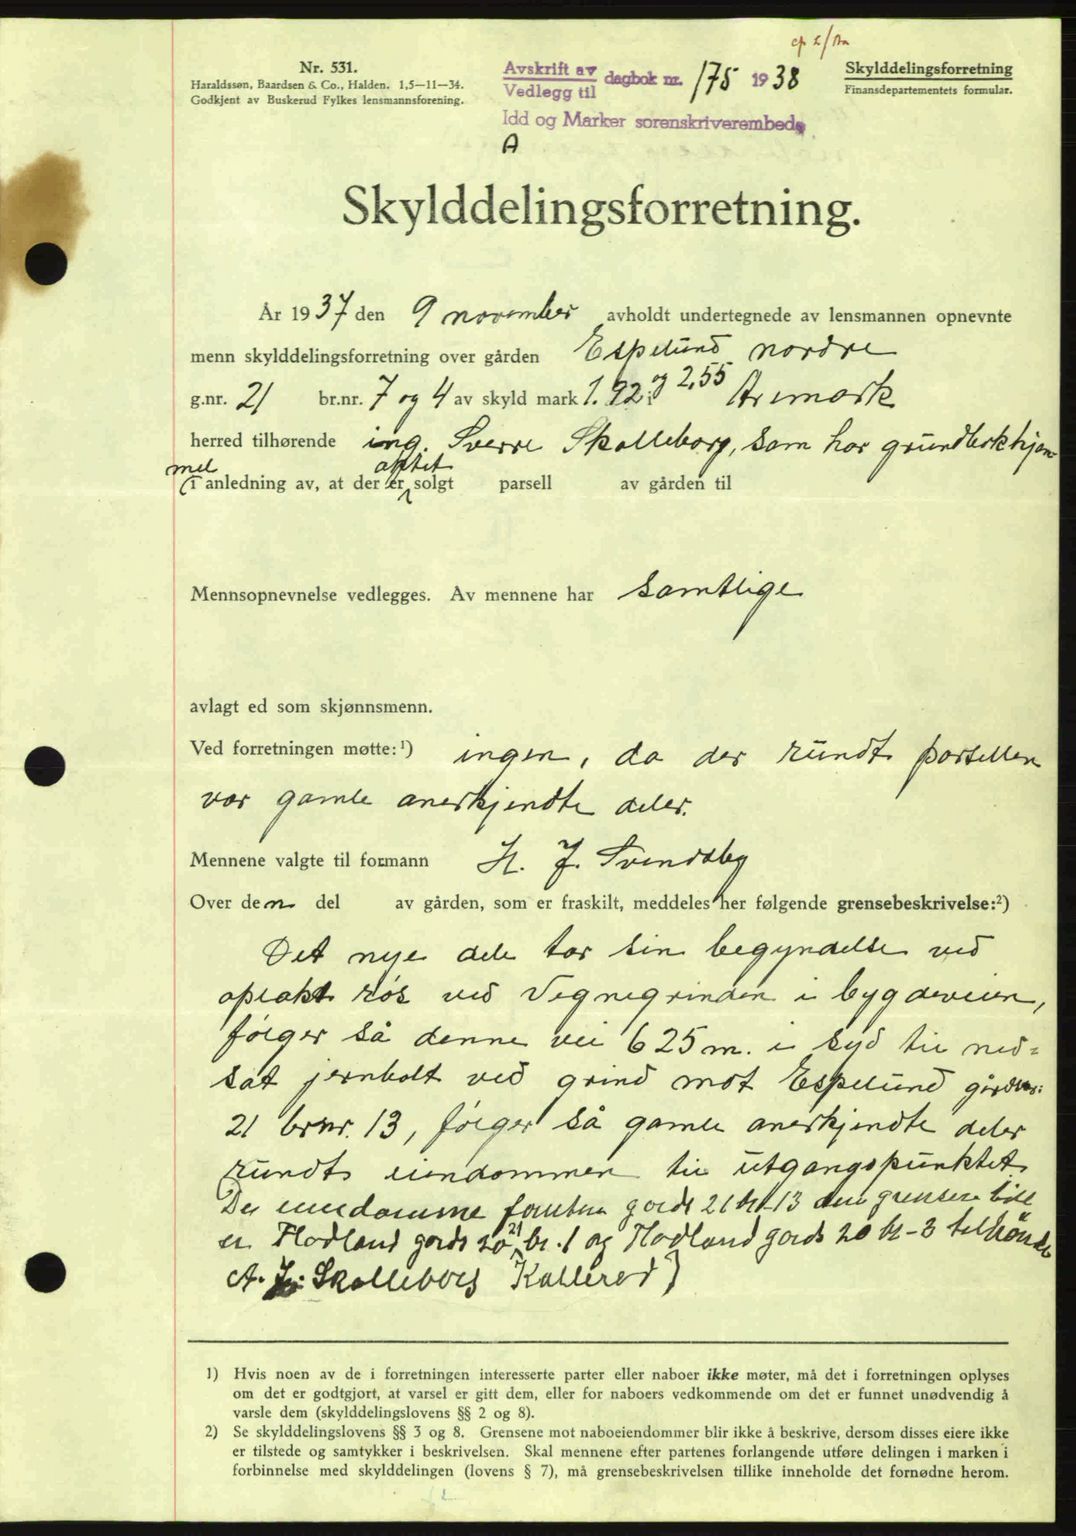 cfr 2/
Nr. 531.
Haraldssøn, Baardsen & Co., Halden. 1,5—11—34.
Godkjent av Buskerud Fylkes lensmannsforening.
Avskrift av
Vedlegg til dagbok nr. 175 1938
Idd og Marker sorenskriverembede
A
Skylddelingsforretning
Finansdepartementets formular.
Skylddelingsforretning.
År 1937 den 9 november avholdt undertegnede av lensmannen opnevnte
menn skylddelingsforretning over gården Espelund nordre
g.nr. 21 br.nr. 7 og 4 av skyld mark 1.92 og 2,55 i Aremark
herred tilhørende ing. Sverre Skolleborg, som har grundbokhjem-
mel
i anledning av, at der er aptet solgt parsell av gården til
Mennsopnevnelse vedlegges. Av mennene har samtlige
avlagt ed som skjønnsmenn.
Ved forretningen møtte:¹) ingen, da der rundt parsellen
var gamle anerkjendte deler.
Mennene valgte til formann H. J. Svendsby
Over den del av gården, som er fraskilt, meddeles her følgende grensebeskrivelse:²)
Det nye dele tar sin begyndelse ved
oplakt røs ved Vegnegrinden i bygdeveien,
følger så denne vei 625 m. i syd til ned=
sat jernbolt ved grind mot Espelund gårdsnr:
21 brnr. 13, følger så gamle anerkjendte deler
rundt eiendommen til utgangspunktet.
De eiendomme foruten gards 21 br 13 den grensen til
er Flodland gards 20 21 br. 1 og Flodland gards 20 br - 3 tilhönde
A. J. Skolleborg Kallerød)
1) Hvis noen av de i forretningen interesserte parter eller naboer ikke møter, må det i forretningen oplyses
om det er godtgjort, at varsel er gitt dem, eller for naboers vedkommende om det er funnet unødvendig å
varsle dem (skylddelingslovens §§ 2 og 8).
2) Se skylddelingslovens §§ 3 og 8. Grensene mot naboeiendommer blir ikke å beskrive, dersom disses eiere ikke
er tilstede og samtykker i beskrivelsen. Skal mennene efter partenes forlangende utføre delingen i marken i
forbinnelse med skylddelingen (lovens § 7), må grensebeskrivelsen tillike inneholde det fornødne herom.